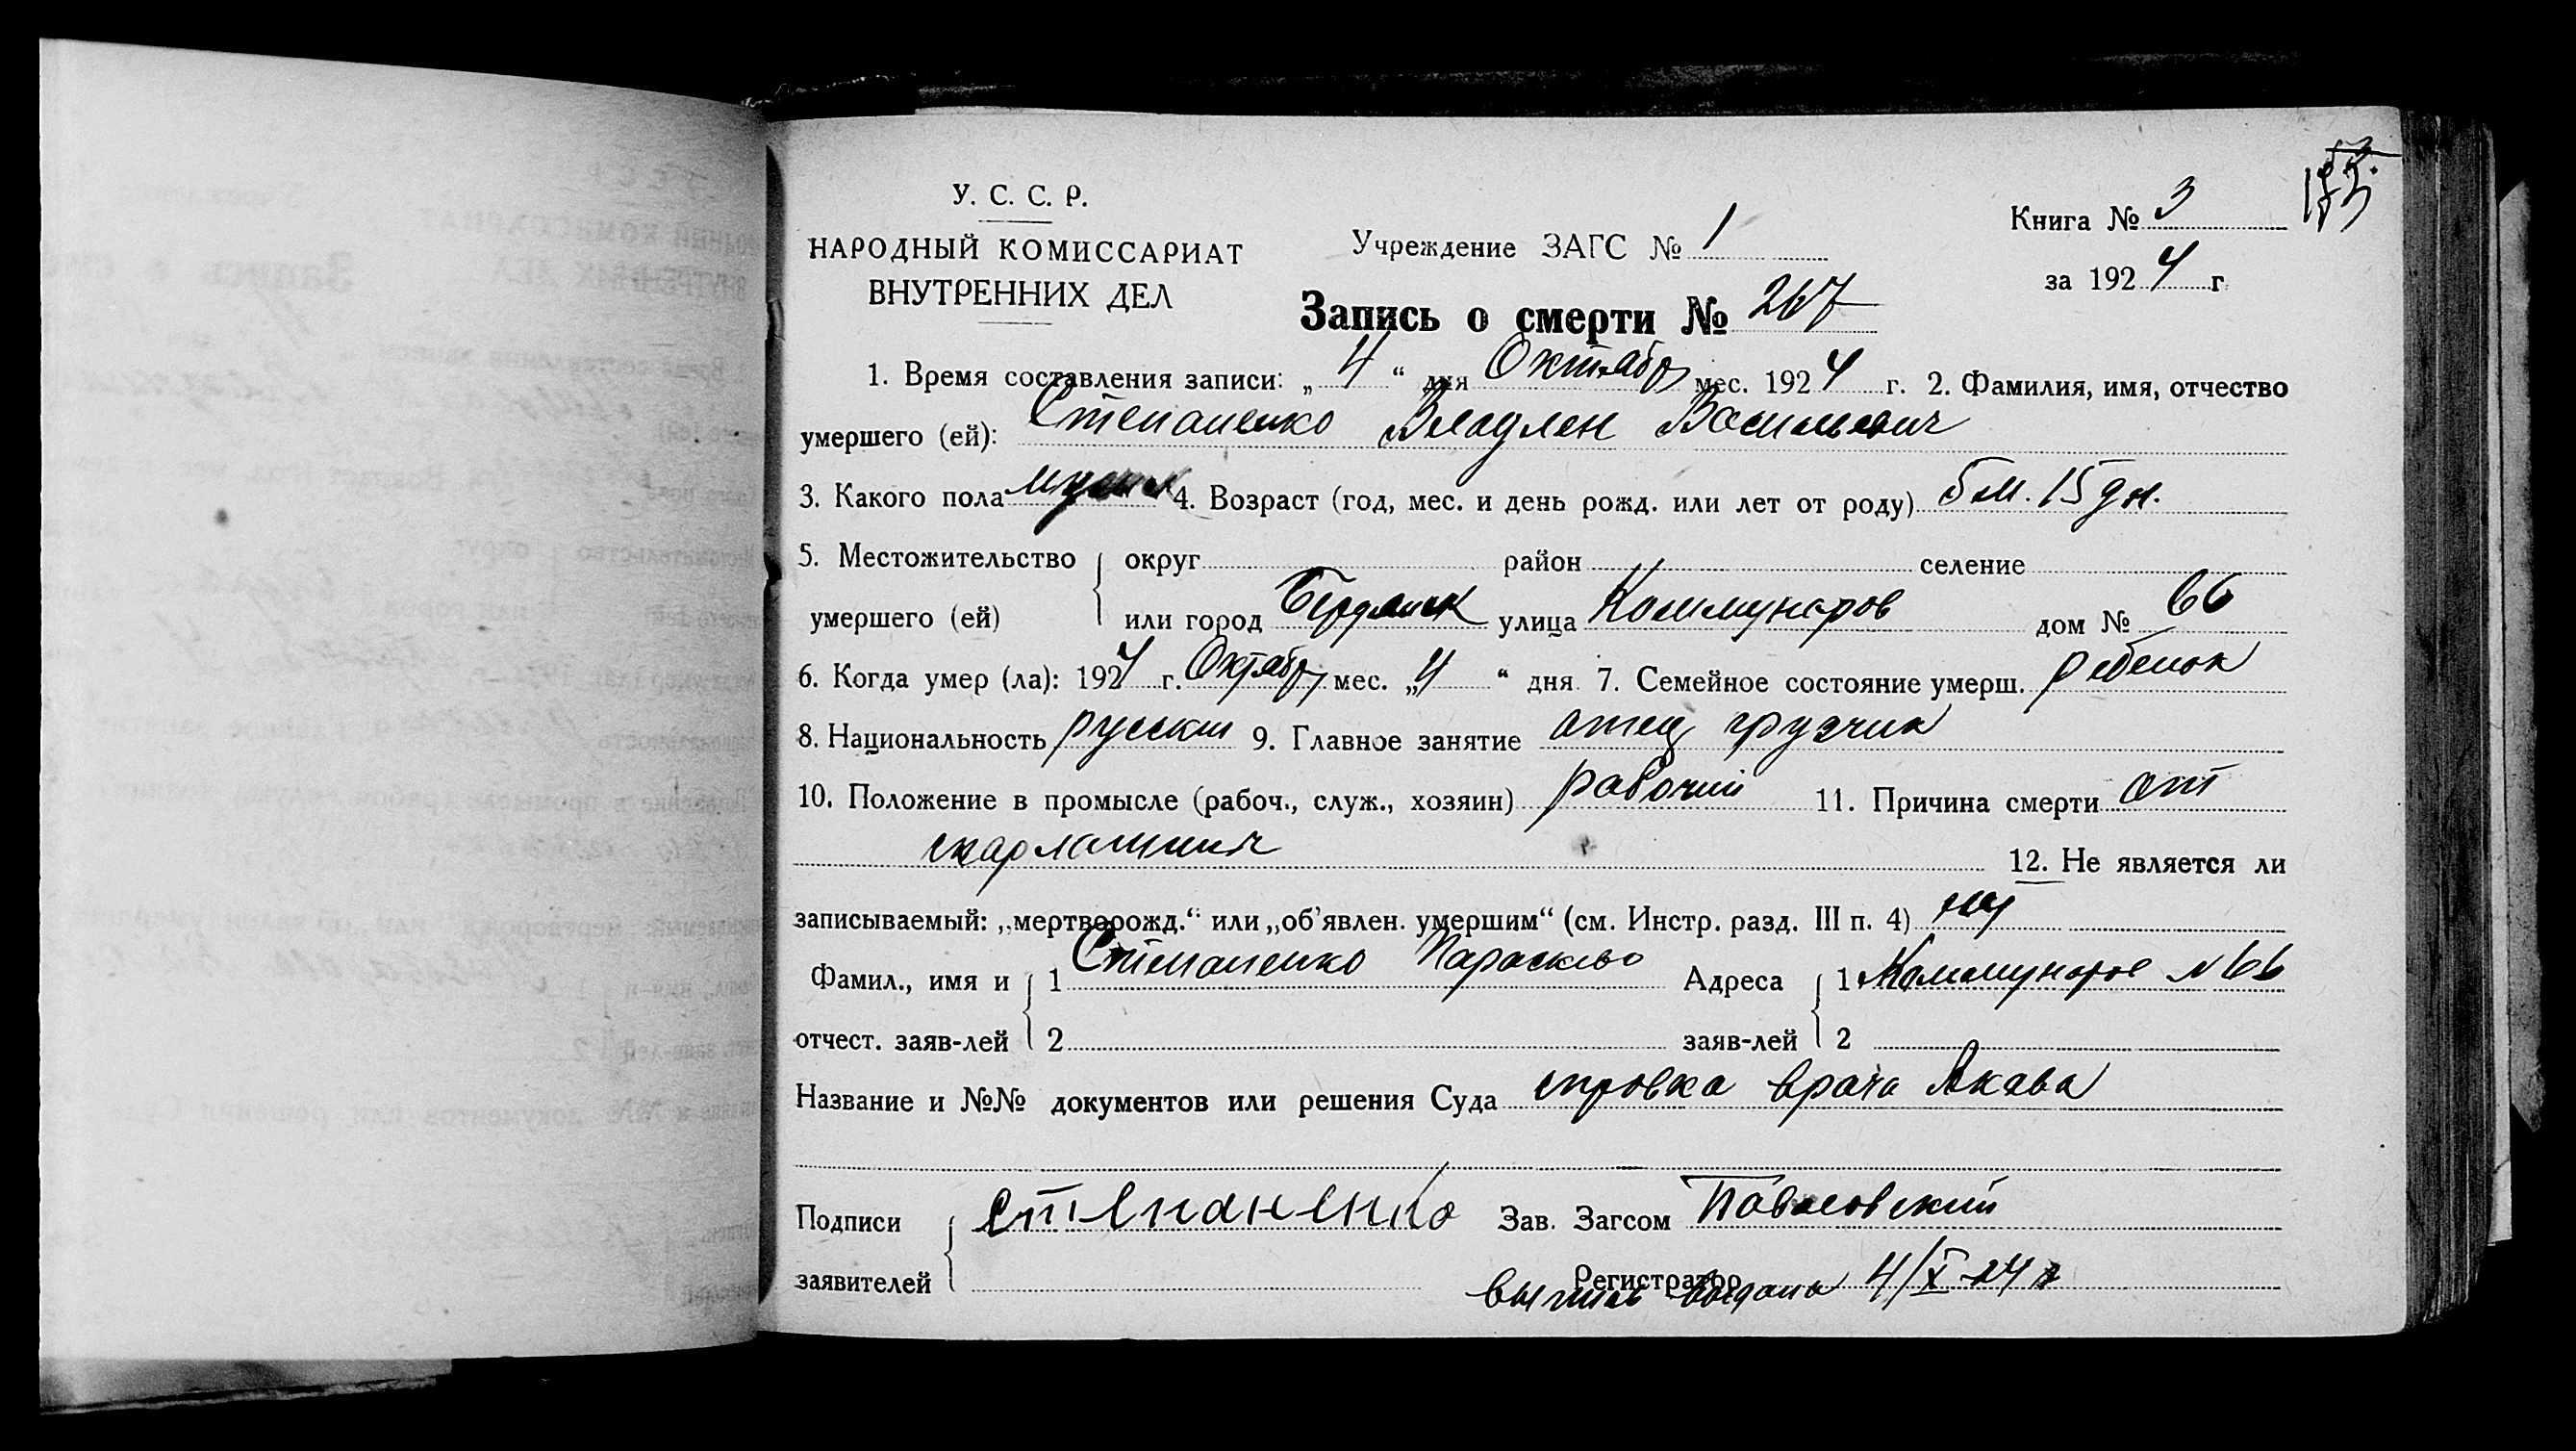 У. С. С. Р.
НАРОДНЫЙ КОМИССАРИАТ
ВНУТРЕННИХ ДЕЛ
Учреждение ЗАГС № 1
Книга № 3
за 1924 г
Запись о смерти № 267
1. Время составления записи: „4“ дня Октября мес. 1924 г. 2. Фамилия, имя, отчество
умершего (ей): Степаненко Владлен Васильевич
3. Какого пола мужск 4. Возраст (год, мес. и день рожд. или лет от роду) 5 м. 15 дн.
5. Местожительство округ район селение
умершего (ей) или город Бердянск улица Коммунаров дом № 66
6. Когда умер (ла): 1924 г. Октябр мес. „4“ дня 7. Семейное состояние умерш. ребенок
8. Национальность русский 9. Главное занятие отец грузчик
10. Положение в промысле (рабоч., служ., хозяин) рабочий 11. Причина смерти от
скарлатины
12. Не является ли
записываемый: „мертворожд.“ или „об’явлен. умершим“ (см. Инстр. разд. III п. 4) нет
Фамил., имя и 1 Степаненко Параскева Адреса 1 Коммунаров № 66
отчест. заяв-лей 2 заяв-лей 2
Название и №№ документов или решения Суда справка врача
Подписи Степаненко Зав. Загсом
заявителей Регистратор
выпись выдана 4/X-24 г